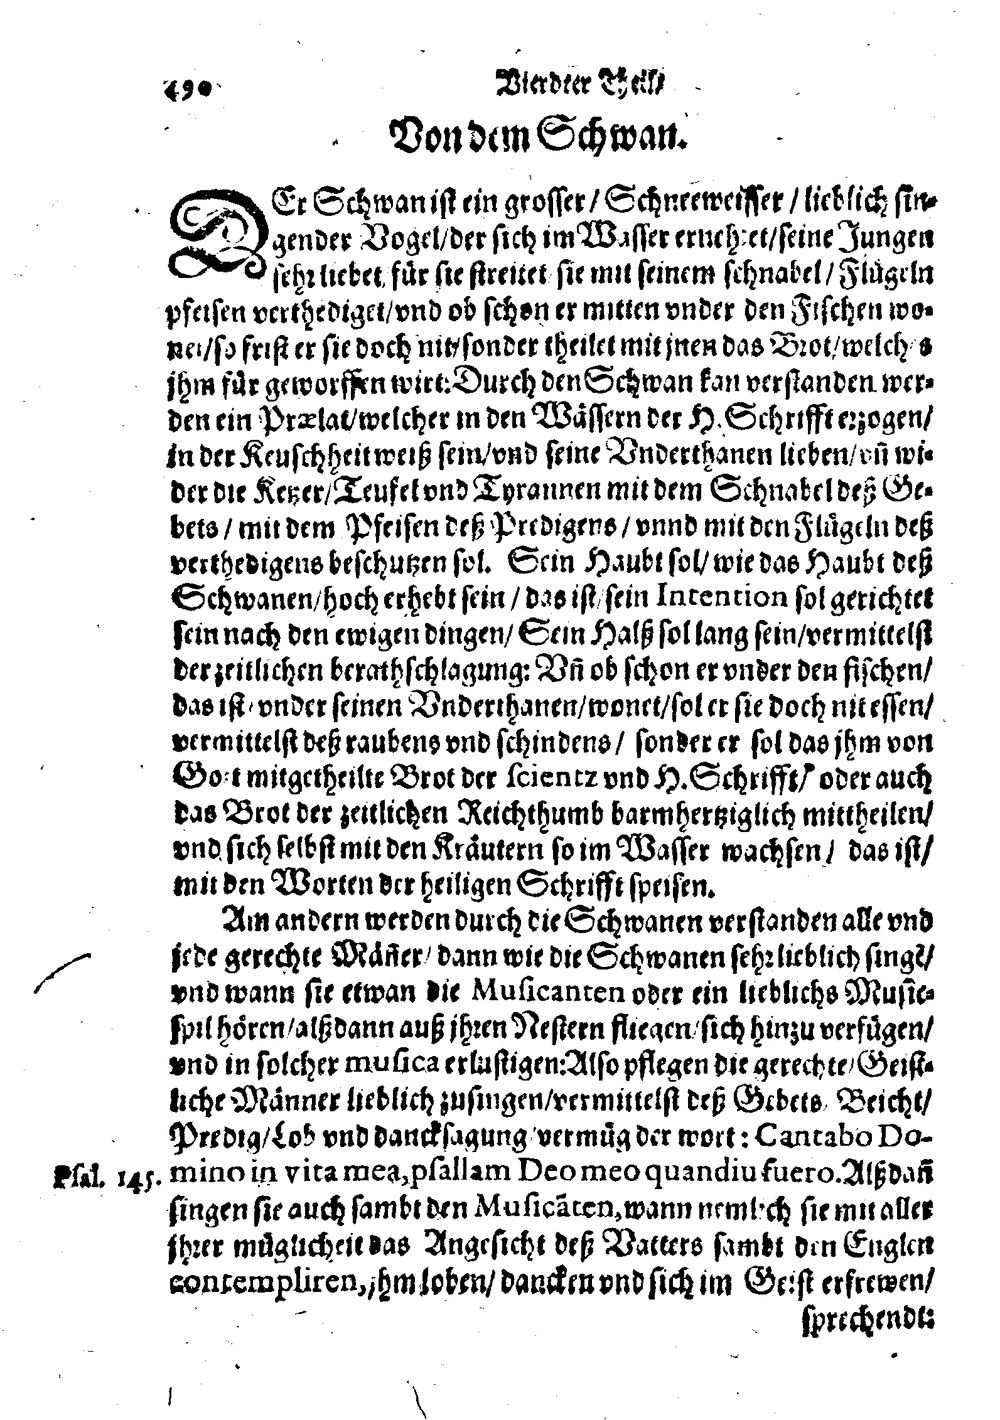 490 Vierdter Theil/
Von dem Schwan.
DEr Schwan ist ein grosser / Schneeweisser / lieblich sin-
gender Vogel/der sich im Wasser ernehret/seine Jungen
sehr liebet für sie streitet sie mit seinem schnabel / Flügeln
pfeisen verthediget/vnd ob schon er mitten vnder den Fischen wo-
net/so frist er sie doch nit/sonder theilet mit jnen das Brot/welches
jhm für geworffen wirt: Durch den Schwan kan verstanden wer-
den ein Prælat/welcher in den Wässern der H. Schrifft erzogen/
in der Keuschheit weiß sein/vnd seine Vnderthanen lieben/vñ wi-
der die Ketzer/Teufel vnd Tyrannen mit dem Schnabel deß Ge-
bets / mit dem Pfeisen deß Predigens / vnnd mit den Flügeln deß
verthedigens beschutzen sol. Sein Haubt sol/ wie das Haubt deß
Schwanen/hoch erhebt sein / das ist/ sein Intention sol gerichtet
sein nach den ewigen dingen/ Sein Halß sol lang sein/vermittelst
der zeitlichen berathschlagung: Vñ ob schon er vnder den fischen/
das ist/ vnder seinen Vnderthanen/wonet/sol er sie doch nit essen/
vermittelst deß raubens vnd schindens/ sonder er sol das jhm von
Gott mitgetheilte Brot der scientz vnd H. Schrifft/ oder auch
das Brot der zeitlichen Reichthumb barmhertziglich mittheilen/
vnd sich selbst mit den Kräutern so im Wasser wachsen / das ist/
mit den Worten der heiligen Schrifft speisen.
Am andern werden durch die Schwanen verstanden alle vnd
jede gerechte Mäñer/ dann wie die Schwanen sehr lieblich singẽ/
vnd wann sie etwan die Musicanten oder ein lieblichs Music-
spil hören/alßdann auß jhren Nestern fliegen/sich hinzu verfügen/
vnd in solcher musica erlustigen: Also pflegen die gerechte/ Geist-
liche Männer lieblich zusingen/vermittelst deß Gebets/ Beicht/
Predig/Lob vnd dancksagung/vermüg der wort: Cantabo Do-
Psal. 145. mino in vita mea, psallam Deo meo quandiu fuero. Alßdañ
singen sie auch sambt den Musicãten, wann nemlich sie mit aller
jhrer müglicheit das Angesicht deß Vatters sambt den Englen
contempliren, jhm loben/ dancken vnd sich im Geist erfrewen/
sprechendt: